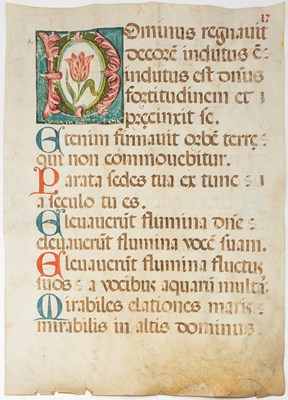 17
Dominus regnavit
decorẽ indutus ẽ:
indutus est dñus
fortitudinem et
p̃cinxit se.
Etenim firmavit orbẽ terrę
qui non commouebitur.
Parata sedes tua ex tunc :
a seculo tu es.
Eleuauerũt flumina dñe :
eleuauerũt flumina vocẽ suam.
Eleuauerũt flumina fluctus
suos : a vocibus aquarũ multaꝝ
Mirabiles elationes maris :
mirabilis in altis dominus.